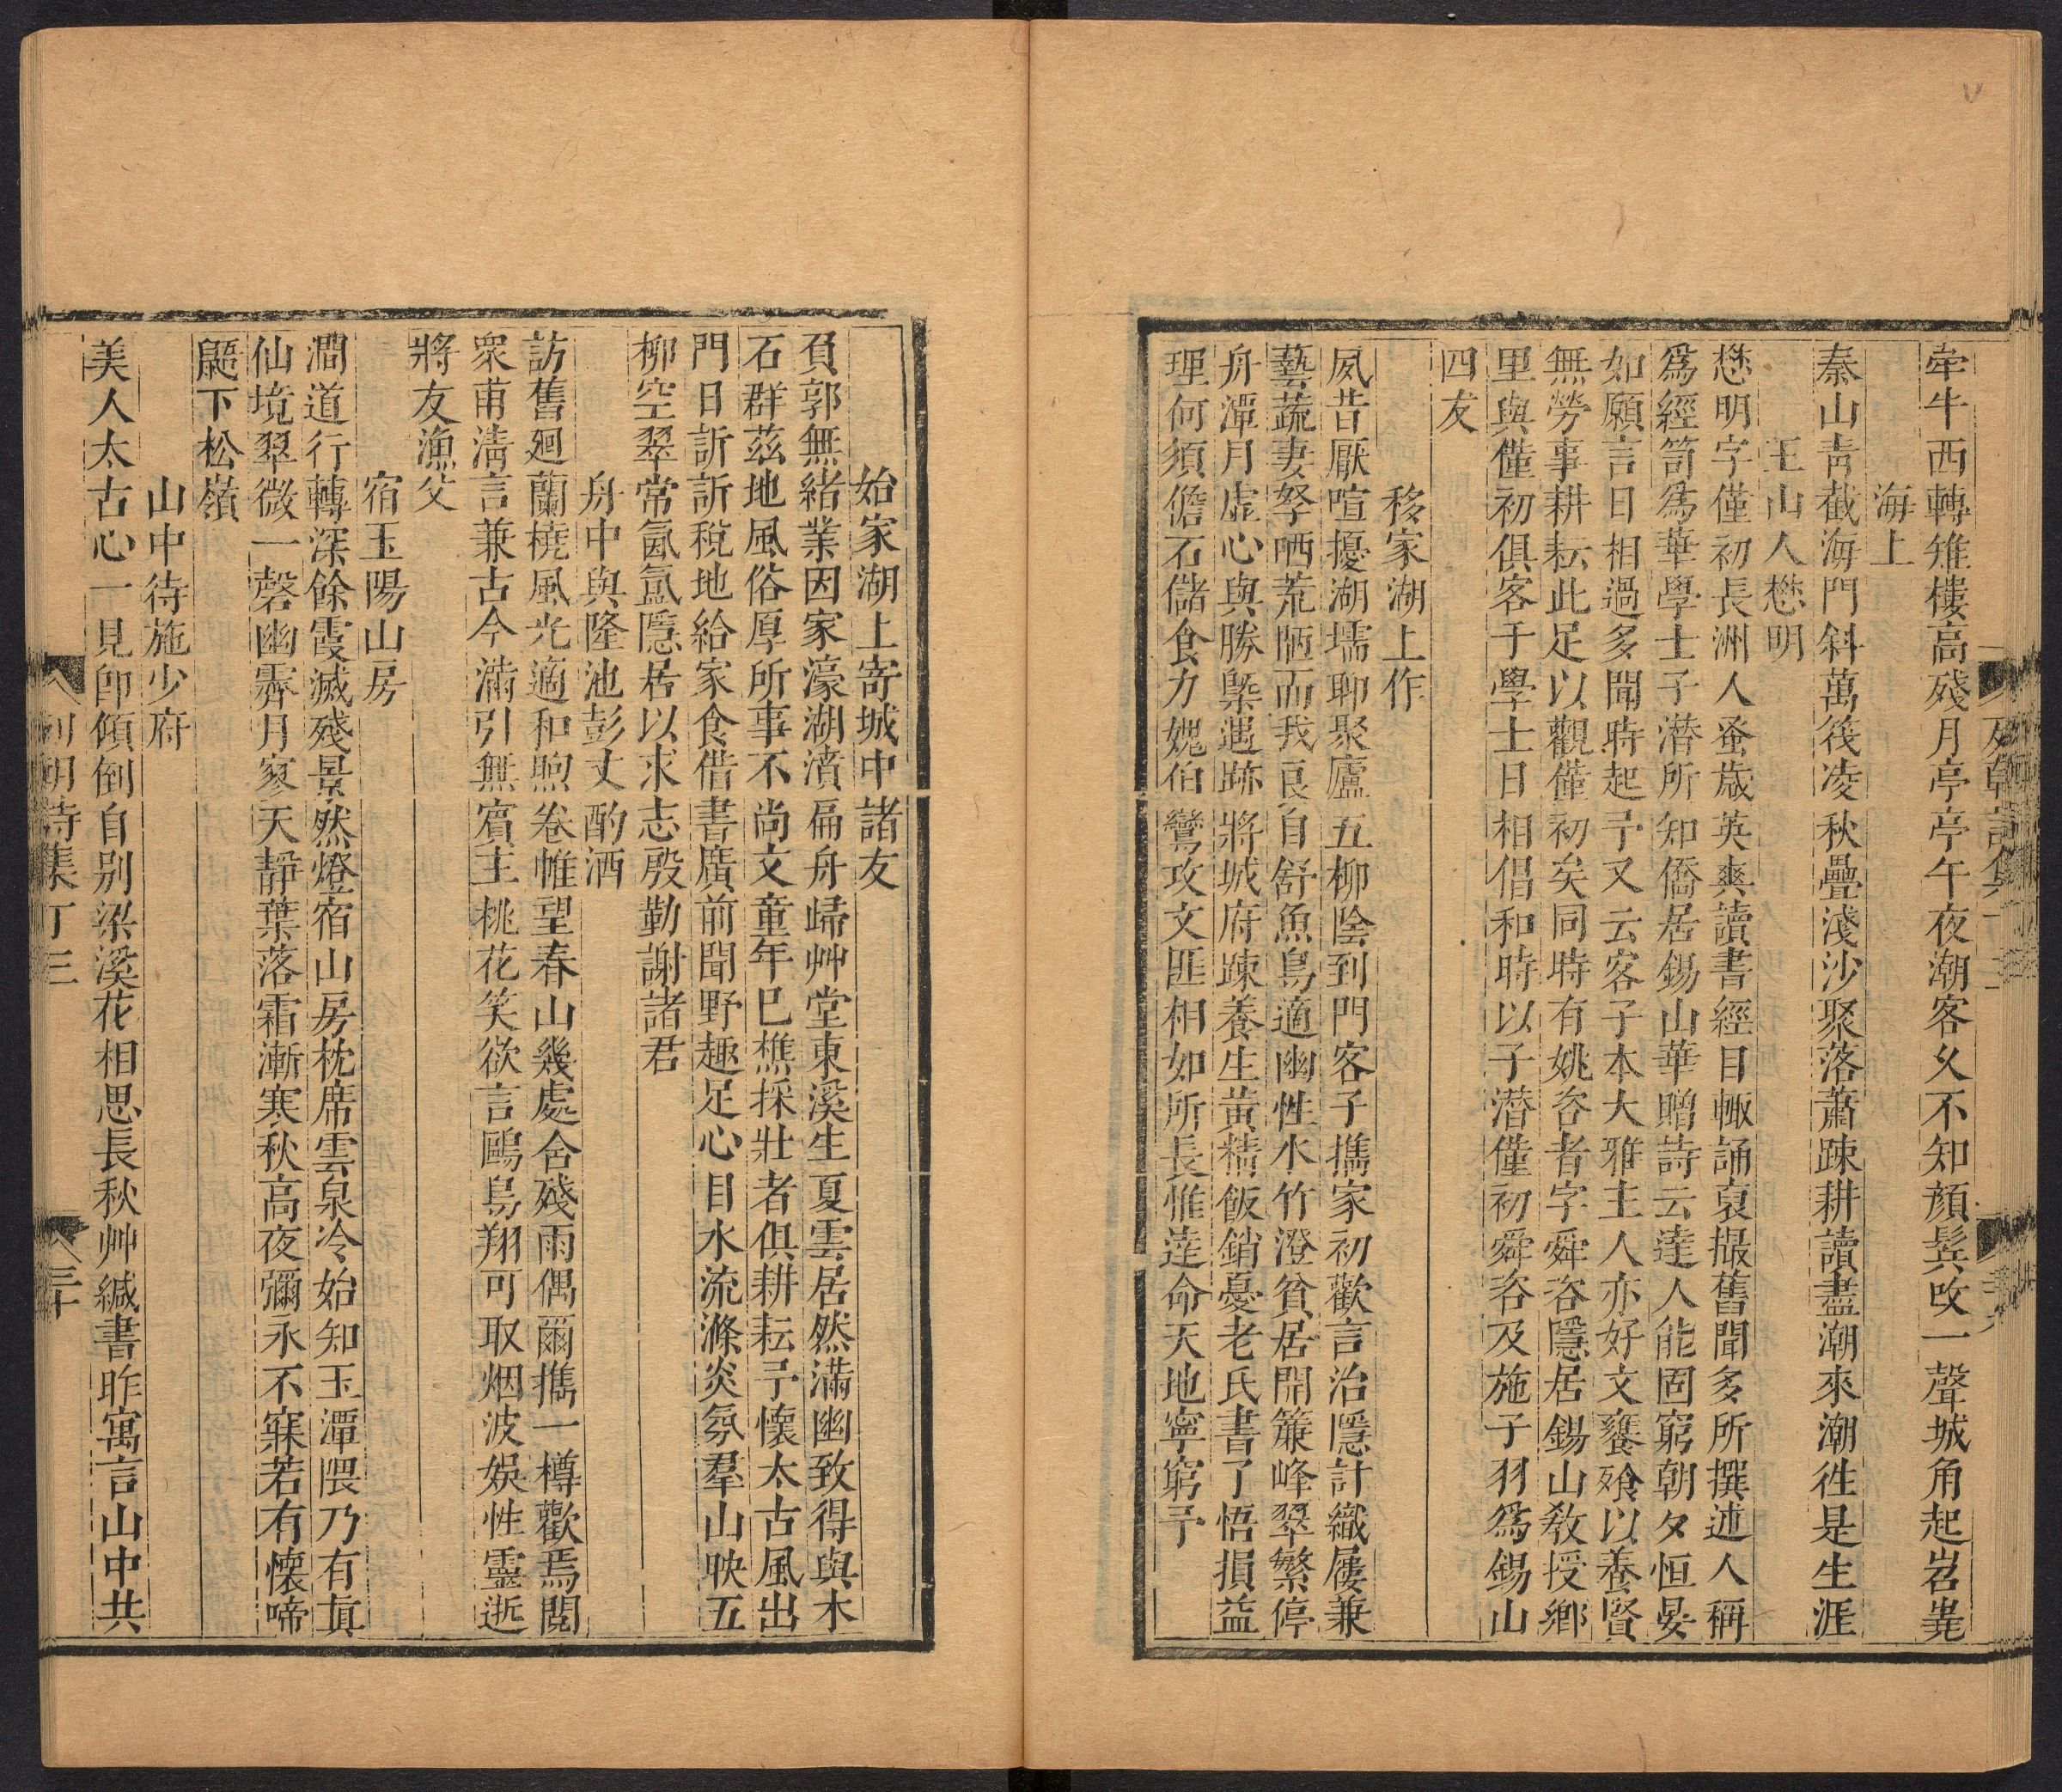 牵牛西轉雉樓高殘月亭亭午夜潮客久不知顏鬂改一聲城角起岧嶤
海上
秦山青截海門斜萬筏凌秋疊淺沙聚落蕭踈耕讀盡潮來潮徃是生涯
王山人懋明
懋明字僅初長洲人蚤歲英爽讀書經目輙誦裒撮舊聞多所撰述人稱
爲經笥爲華學士子潜所知僑居錫山華贈詩云達人能固窮朝夕恒晏
如願言日相過多聞時起予又云客子本大雅主人亦好文饔飱以養賢
無勞事耕耘此足以觀僅初矣同時有姚咨者字舜咨隱居錫山敎授鄉
里與僅初俱客于學士日相倡和時以子潜僅初舜咨及施子羽爲錫山
四友
移家湖上作
夙昔厭喧擾湖壖聊聚廬五柳陰到門客子攜家初歡言治隱計織屨兼
藝蔬妻孥哂荒陋而我良自舒魚鳥適幽性水竹澄貧居開簾峰翠繁停
舟潭月虚心與勝槩遇跡將城府踈養生黃精飯銷憂老氏書了悟損益
理何須儋石儲食力媿伯鸞攻文匪相如所長惟達命天地寧窮予
始家湖上寄城中諸友
負郭無緒業因家濠湖濱扁舟歸艸堂東溪生夏雲居然滿幽致得與木
石群茲地風俗厚所事不尚文童年已樵採壯者俱耕耘予懷太古風出
門日訢訢稅地給家食借書廣前聞野趣足心目水流滌炎氛羣山映五
柳空翠常氤氳隱居以求志殷勤謝諸君
舟中與隆池彭丈酌酒
訪舊廻蘭橈風光適和煦卷帷望春山幾處含殘雨偶爾攜一樽歡焉閱
衆甫淸言兼古今滿引無賓主桃花笑欲言鷗鳥翔可取烟波娛性靈逝
將友漁父
宿玉陽山房
澗道行轉深餘霞滅殘景然燈宿山房枕席雲泉冷始知玉潭隈乃有眞
仙境翠微一磬幽霽月寥天靜葉落霜漸寒秋高夜彌永不寐若有懷啼
鼯下松嶺
山中待施少府
美人太古心一見卽傾倒自别梁溪花相思長秋艸緘書昨寓言山中共
列朝詩集丁三
三十